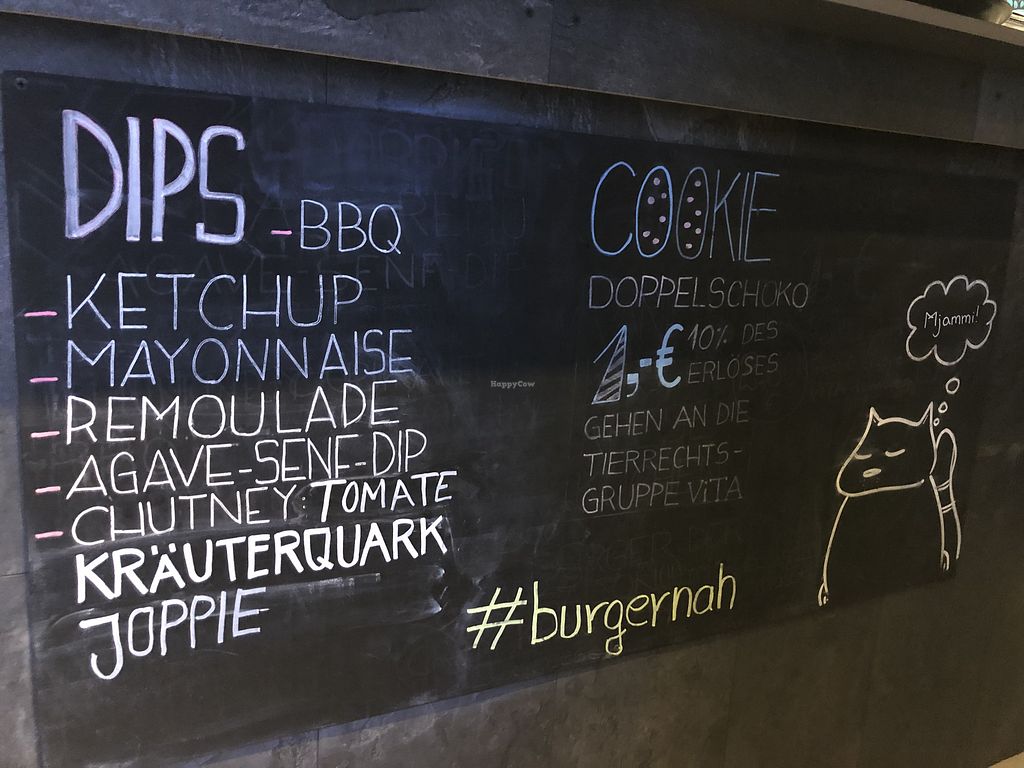 DIPS
- BBQ
- KETCHUP
- MAYONNAISE
- REMOULADE
- AGAVE-SENF-DIP
- CHUTNEY: TOMATE
KRÄUTERQUARK
JOPPIE
COOKIE
DOPPELSCHOKO
1,-€ 10% DES
ERLÖSES
GEHEN AN DIE
TIERRECHTS-
GRUPPE ViTA
#burgernah
Mjammi!
HappyCow